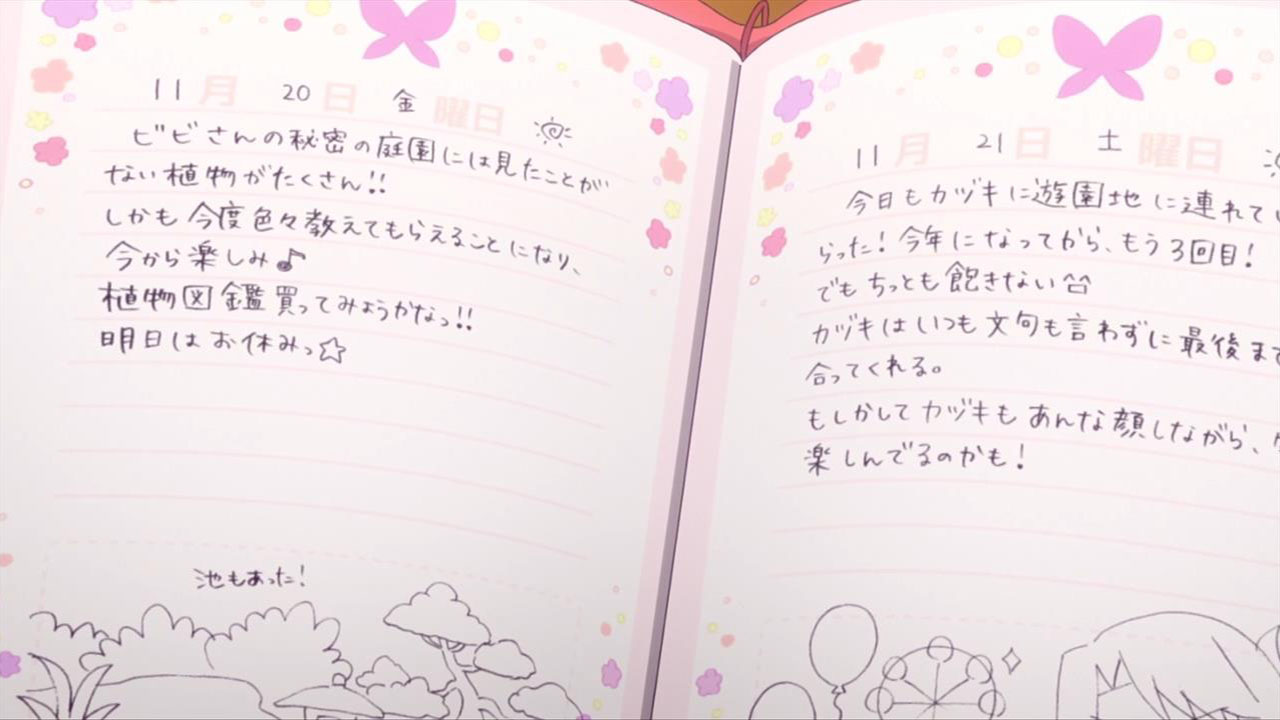 11月 20日 金曜日
ビビさんの秘密の庭園には見たことが
ない植物がたくさん!!
しかも今度色々教えてもらえることになり、
今から楽しみ♪
植物図鑑買ってみようかなっ!!
明日はお休みっ☆
池もあった!
11月 21日 土曜日
今日もカヅキに遊園地に連れて
らった!今年になってから、もう3回目!
でもちっとも飽きない^^
カヅキはいつも文句も言わずに最後ま
合ってくれる。
もしかしてカヅキもあんな顔しながら、
楽しんでるのかも!